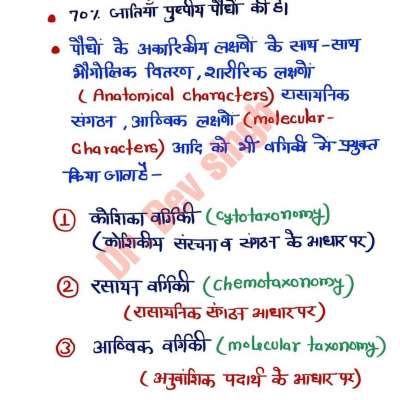 • 70% जातियाँ पुष्पीय पौधों की हैं।
• पौधों के अकारिकीय लक्षणों के साथ-साथ
भौगोलिक वितरण, शारीरिक लक्षणों
(Anatomical characters) रासायनिक
संगठन, आण्विक लक्षणों (molecular-
Characters) आदि को भी वर्गिकी में प्रयुक्त
किया जाता है-
① कोशिका वर्गिकी (cytotaxonomy)
(कोशिकीय संरचना व संगठन के आधार पर)
② रसायन वर्गिकी (chemotaxonomy)
(रासायनिक संगठन आधार पर)
③ आण्विक वर्गिकी (molecular taxonomy)
(अनुवांशिक पदार्थ के आधार पर)
Dr. Dev Singh